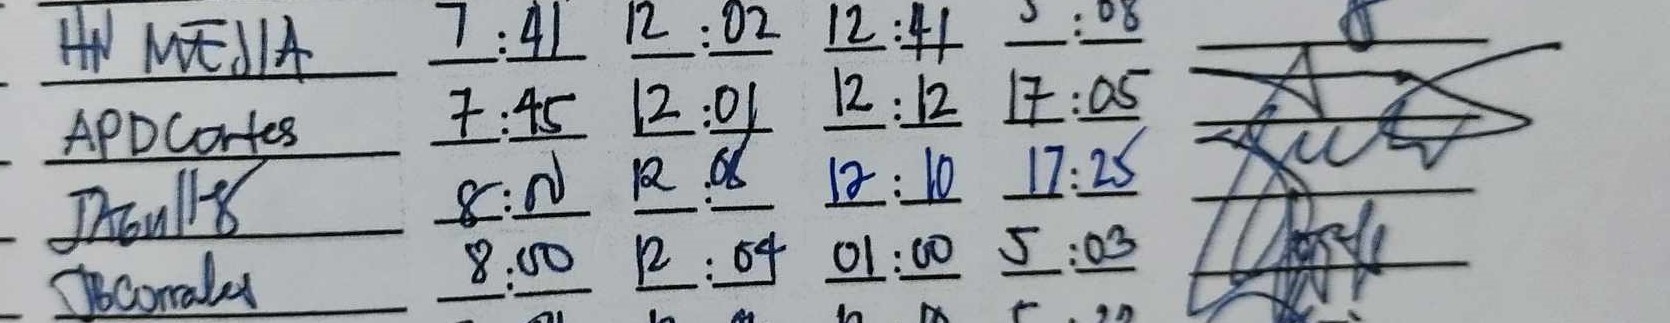 HN MEJIA 7:41 12:02 12:41 5:08
APDCortes 7:45 12:01 12:12 17:05
8: 12:06 12:10 17:25
JBCorrales 8:00 12:04 01:00 5:03